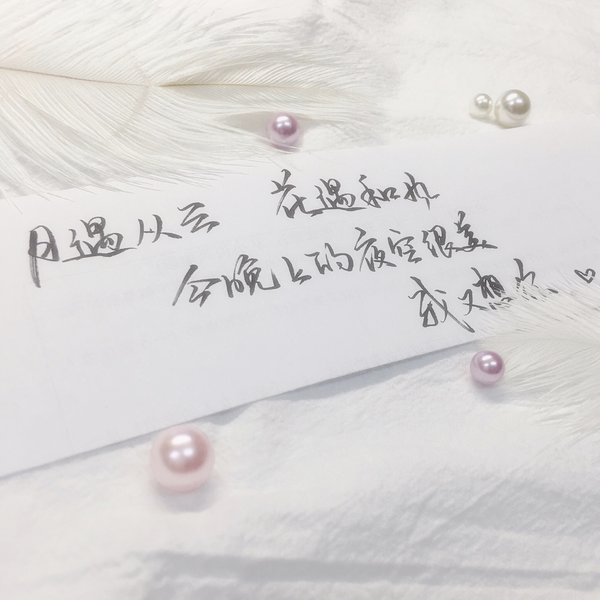 月遇从云 花遇和风
今晚上的夜空很美
我又想你♡